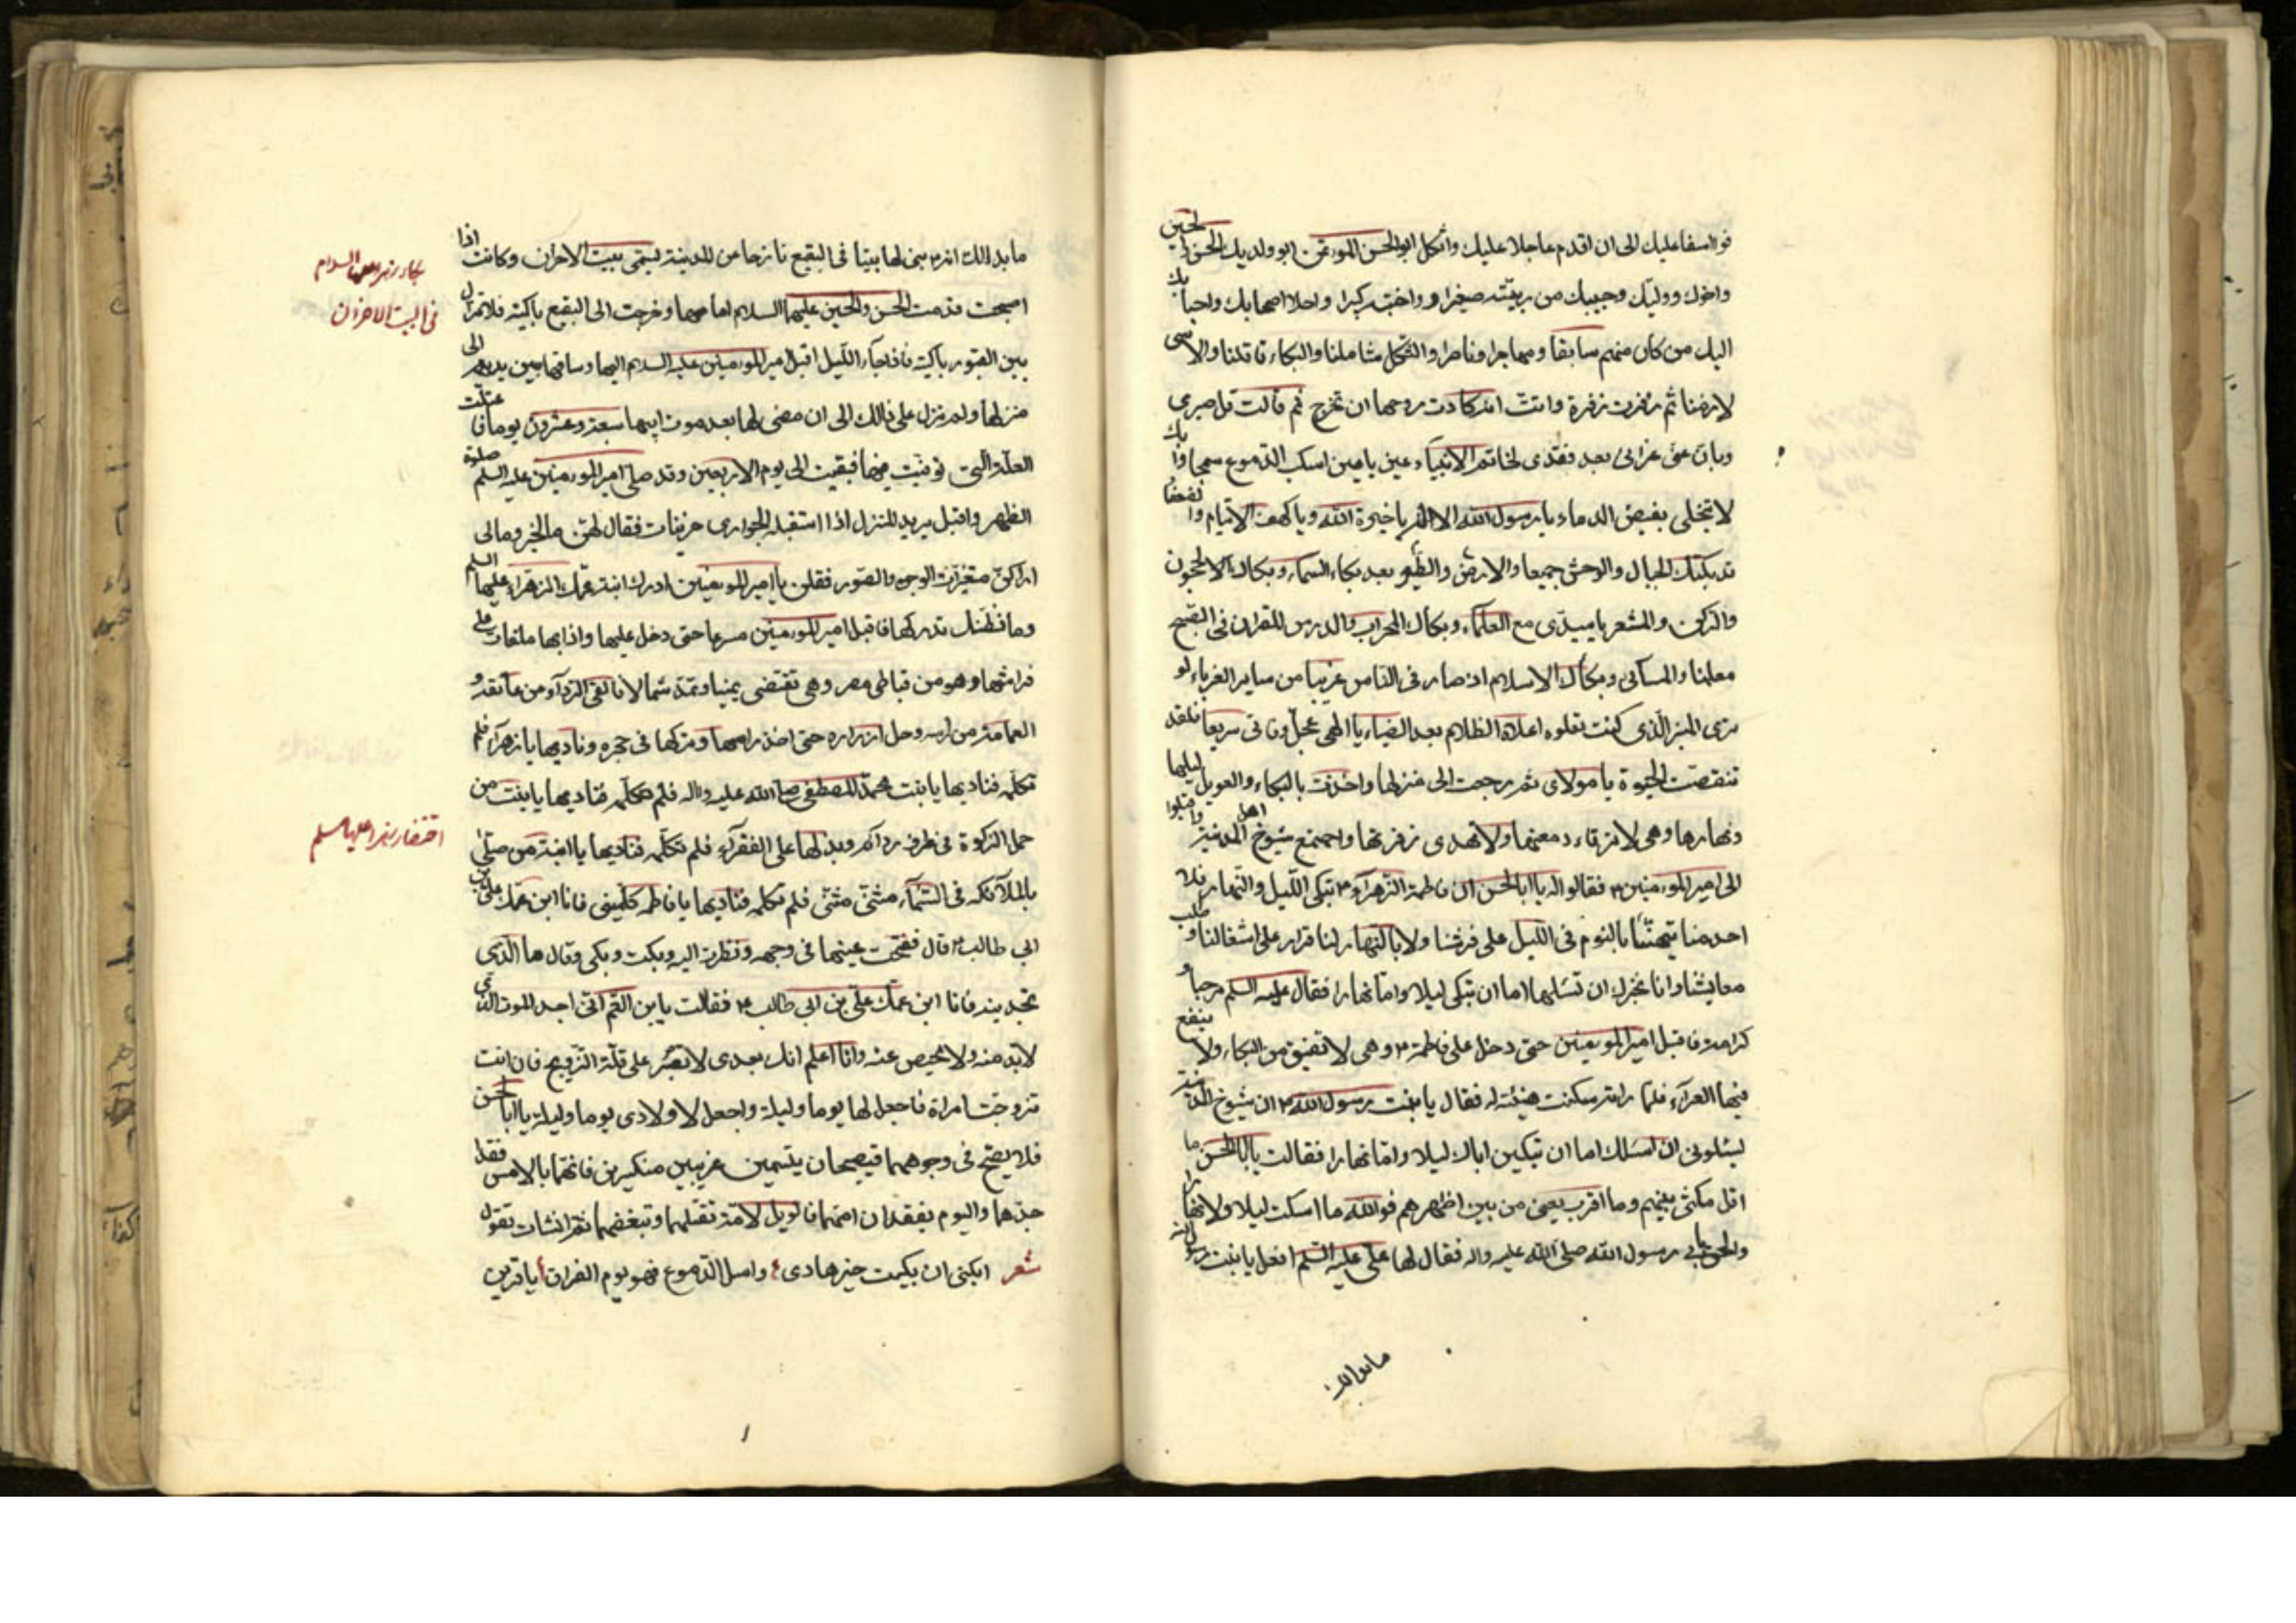 فوااسفا عليك الى ان اقدم عاجلا عليك واثكل ابوالحسن المؤتمن ابو ولديك الحسن والحسين
واخوك ووليك وحبيبك من ربيته صغيرا وواخيته كبيرا واحلا اصحابك واحبابك
اليك من كان منهم سابقا ومهاجرا وناصرا والثكل شاملنا والبكاء قاتلنا والاسى
لازمنا ثم زفرت زفرة وانت انة كادت روحها ان تخرج ثم قالت قل صبرى
وبان عنى عزائى بعد فقدى لخاتم الانبياء عين يا عين اسكب الدموع سحا وا بك
لا تبخلى بفيض الدماء يا رسول الاله يا خيرة الله ويا كهف الايتام والضعفا
قد بكتك الجبال والوحش جميعا والارض والطير بعد بكاء السماء وبكاك الحجون
والركن والمشعر يا سيدى مع العلماء وبكاك المحراب والدرس للقران فى الصبح
معلنا والمسائى وبكاك الاسلام اذ صار فى الناس غريبا من ساير الغرباء لو
ترى المنبر الذى كنت تعلوه اعلاه الظلام بعد الضياء يا الهى عجل وفاتى سريعا فلقد
تنقصت الحيوة يا مولاى ثم رجعت الى منزلها واخذت بالبكاء والعويل ليلها
ونهارها وهى لا ترقاء دمعتها ولا تهدى زفرتها واجتمع شيوخ اهل المدينة واقبلوا
الى امير المؤمنين ع فقالوا له يا ابا الحسن ان فاطمة الزهراء ع تبكى الليل والنهار فلا
احد منا يتهنأ بالنوم فى الليل على فرشنا ولا بالنهار لنا قرار على اشغالنا وطلب
معايشنا وانا نخبرك ان تسئلها اما ان تبكى ليلا واما نهارا فقال عليه السلم مرحبا و
كرامة فاقبل امير المؤمنين حتى دخل على فاطمة ع وهى لا تفيق من البكاء ولا ينفع
فيها العزاء فلما راته سكنت هنيئة له فقال يا بنت رسول الله ص ان شيوخ المدينة
يسئلونى ان اسئلك اما ان تبكين اباك ليلا واما نهارا فقالت يا ابا الحسن ما
اقل مكثى بينهم وما اقرب يعنى من بين اظهرهم فوالله ما اسكت ليلا ولا نهارا
والحق بابى رسول الله صلى الله عليه واله فقال لها على عليه السلم افعل يا بنت رسول الله
ما بدا لك
ما بدا لك انه بنى لها بيتا فى البقيع نازحا عن المدينة يسمى بيت الاحزان وكانت اذا
اصبحت قدمت الحسن والحسين عليهما السلام امامها وخرجت الى البقيع باكية فلا تزال
بين القبور باكية فاذا جاء الليل اقبل امير المؤمنين عليه السلام اليها وساقها بين يديه الى
منزلها ولم تزل على ذالك الى ان مضى لها بعد موت ابيها سبعة وعشرون يوما فاعتلت
العلة التى توفيت فيها فبقيت الى يوم الاربعين وقد صلى امير المؤمنين عليه السلم صلوة
الظهر واقبل يريد المنزل اذا استقبله الجوارى حزينات فقال لهن ما الخبر وما لى
اراكن متغيرات الوجوه والصور فقلن يا امير المؤمنين ادرك ابنة عمك الزهراء عليها السلم
وما نظنك تدركها فاقبل امير المؤمنين مسرعا حتى دخل عليها واذا بها ملقاة على
فراشها وهو من قباطى مصر وهى تقتضى يمينا وتمد شمالا فالقى الرداء من عاتقه و
العمامة من راسه وحل ازراره حتى اخذ راسها وتركها فى حجره وناديها يا زهراء فلم
تكلمه فناديها يا بنت محمد المصطفى صلى الله عليه واله فلم تكلمه فناديها يا بنت من
حمل الزكوة فى طرف ردائه وبذلها على الفقراء فلم تكلمه فناديها يا ابنة من صلى
بالملائكه فى السماء مثنى مثنى فلم تكلمه فناديها يا فاطمه كلمينى فانا ابن عمك على بن
ابي طالب ع قال ففتحت عينيها فى وجهه ونظرت اليه وبكت وبكى وقال ما الذى
تجدينه فانا ابن عمك على بن ابي طالب ع فقالت يا بن العم انى اجد الموت الذى
لا بد منه ولا محيص عنه وانا اعلم انك بعدى لا تصبر على قلة التزويج فان انت
تزوجت امراة فاجعل لها يوما وليلة واجعل لاولادى يوما وليلة يا ابا الحسن
فلا يصح فى وجوههما فيصبحان يتيمين غريبين منكسرين فانهما بالامس فقدا
جدهما واليوم يفقدان امهما فالويل لامة تقتلهما وتبغضهما ثم انشات تقول
شعر ابكنى ان بكيت خير هادى واسبل الدموع فهو يوم الفراق يا قرين
فى البيت الاحزان